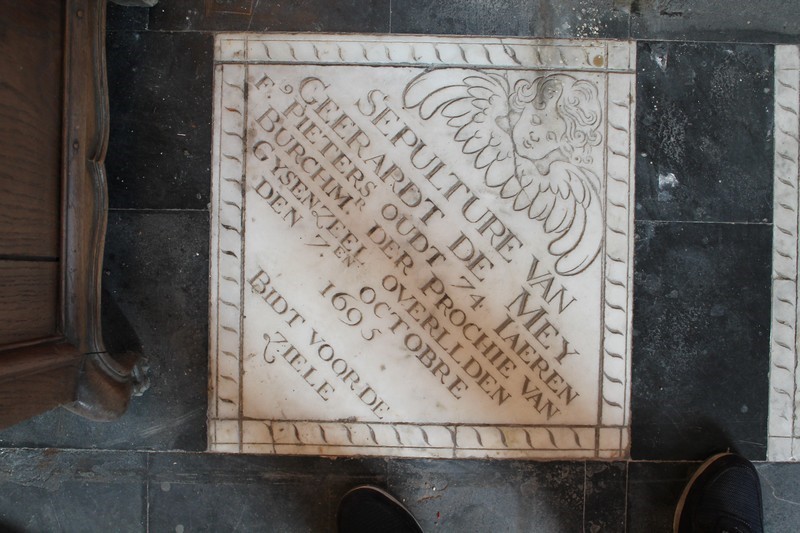 SEPULTURE VAN
GEERARDT DE MEY
F. PIETERS OUDT 74 IAEREN
BURCHMR DER PROCHIE VAN
GYSENZEEL OVERLLDEN
DEN 7EN OCTOBRE
1695
BIDT VOOR DE
ZIELE